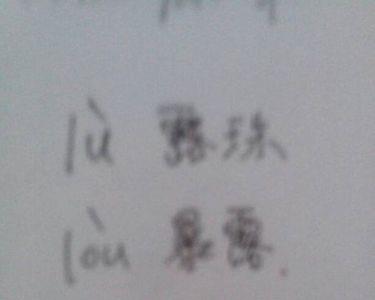 lù 露珠
lòu 暴露.